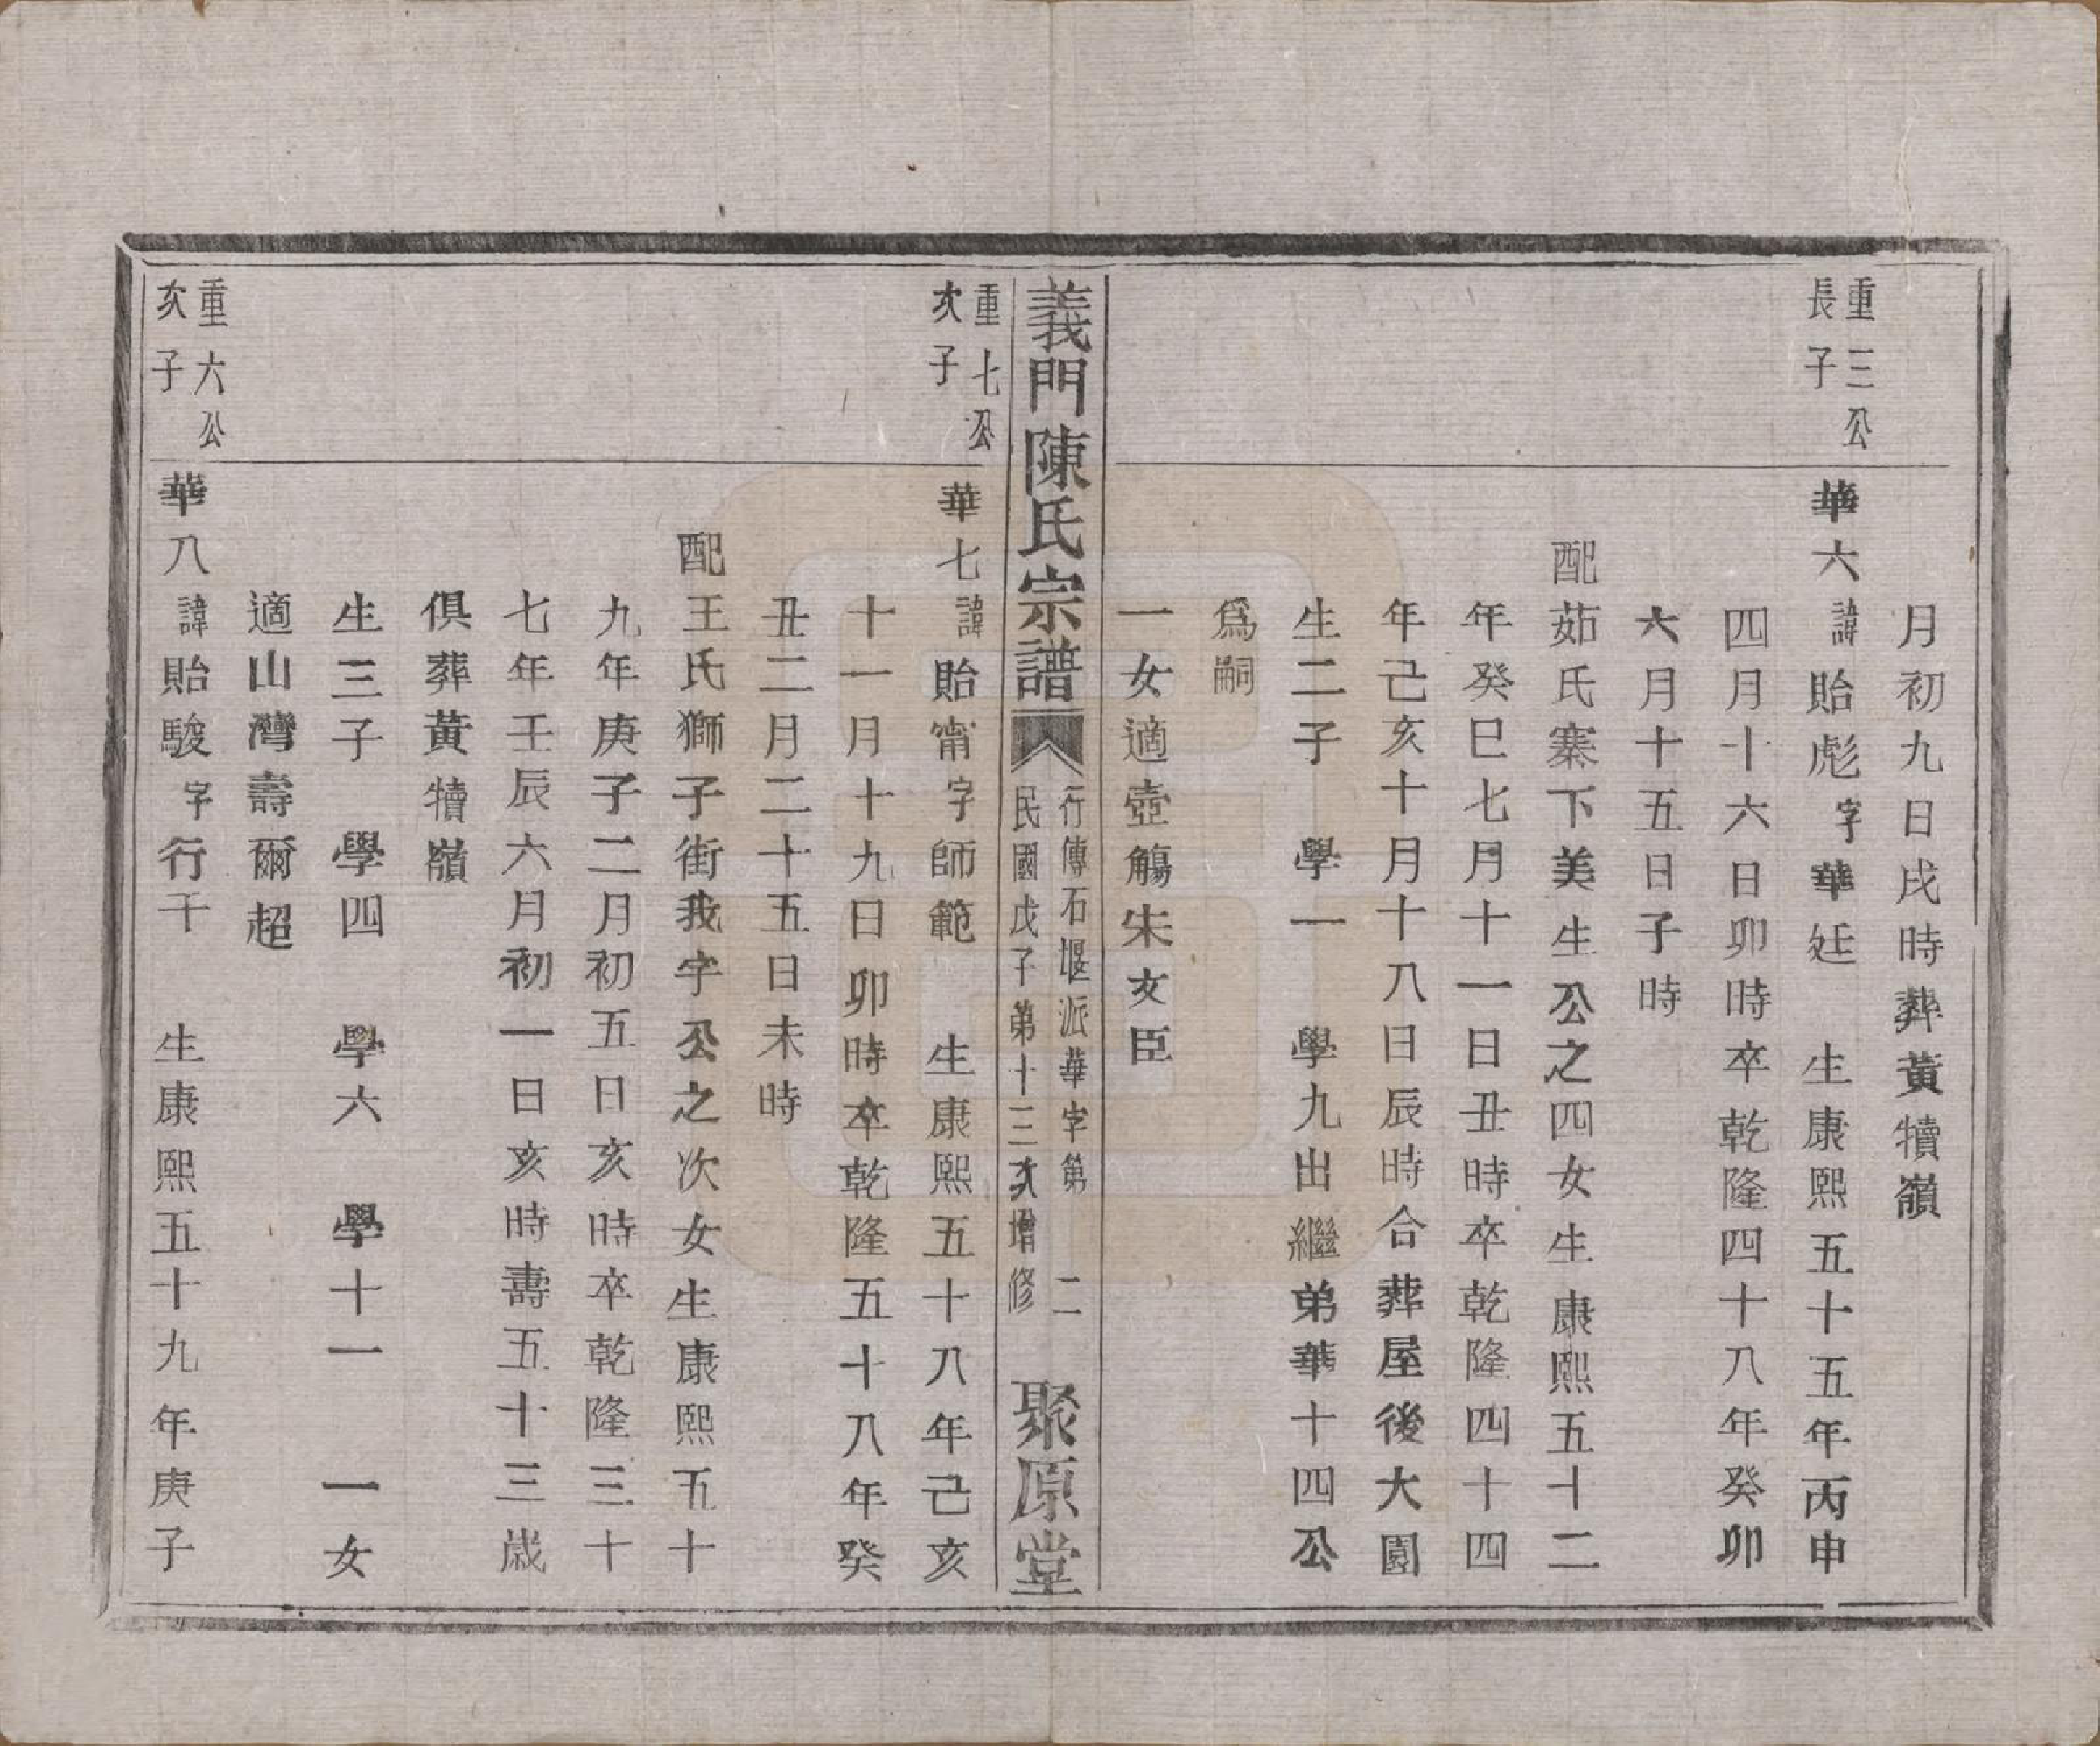 月初九日戌時葬黃犢嶺
重三公
長子
華六諱貽彪字華廷　生康熙五十五年丙申
四月十六日卯時卒乾隆四十八年癸卯
六月十五日子時
配茹氏寨下美生公之四女生康熙五十二
年癸巳七月十一日丑時卒乾隆四十四
年己亥十月十八日辰時合葬屋後大園
生二子　學一　學九出繼弟華十四公
爲嗣
一女適壺觴朱友臣
義門陳氏宗譜
行傳石堰派華字第　二
民國戊子第十三次增修
聚原堂
重七公
次子
華七諱貽甯字師範　生康熙五十八年己亥
十一月十九日卯時卒乾隆五十八年癸
丑二月二十五日未時
配王氏獅子街我字公之次女生康熙五十
九年庚子二月初五日亥時卒乾隆三十
七年壬辰六月初一日亥時壽五十三歲
俱葬黃犢嶺
生三子　學四　學六　學十一　一女
適山灣壽爾超
重六公
次子
華八諱貽駿字行干　生康熙五十九年庚子